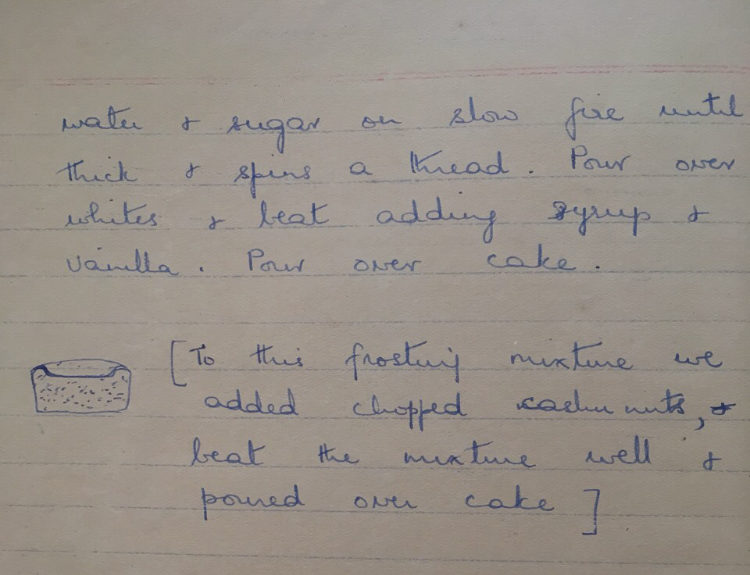 water & sugar on slow fire until
thick & spins a thread. Pour over
whites & beat adding syrup &
vanilla. Pour over cake.
[To this frosting mixture we
added chopped cashu nuts, &
beat the mixture well &
poured over cake]